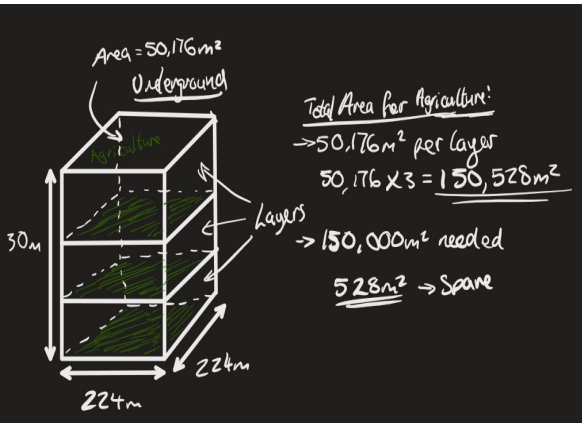 Area = 50,176m²
Underground
Agriculture
30m
Layers
224m
224m
Total Area for Agriculture:
→ 50,176m² per layer
50,176 X 3 = 150,528m²
→ 150,000m² needed
528m² → Spare